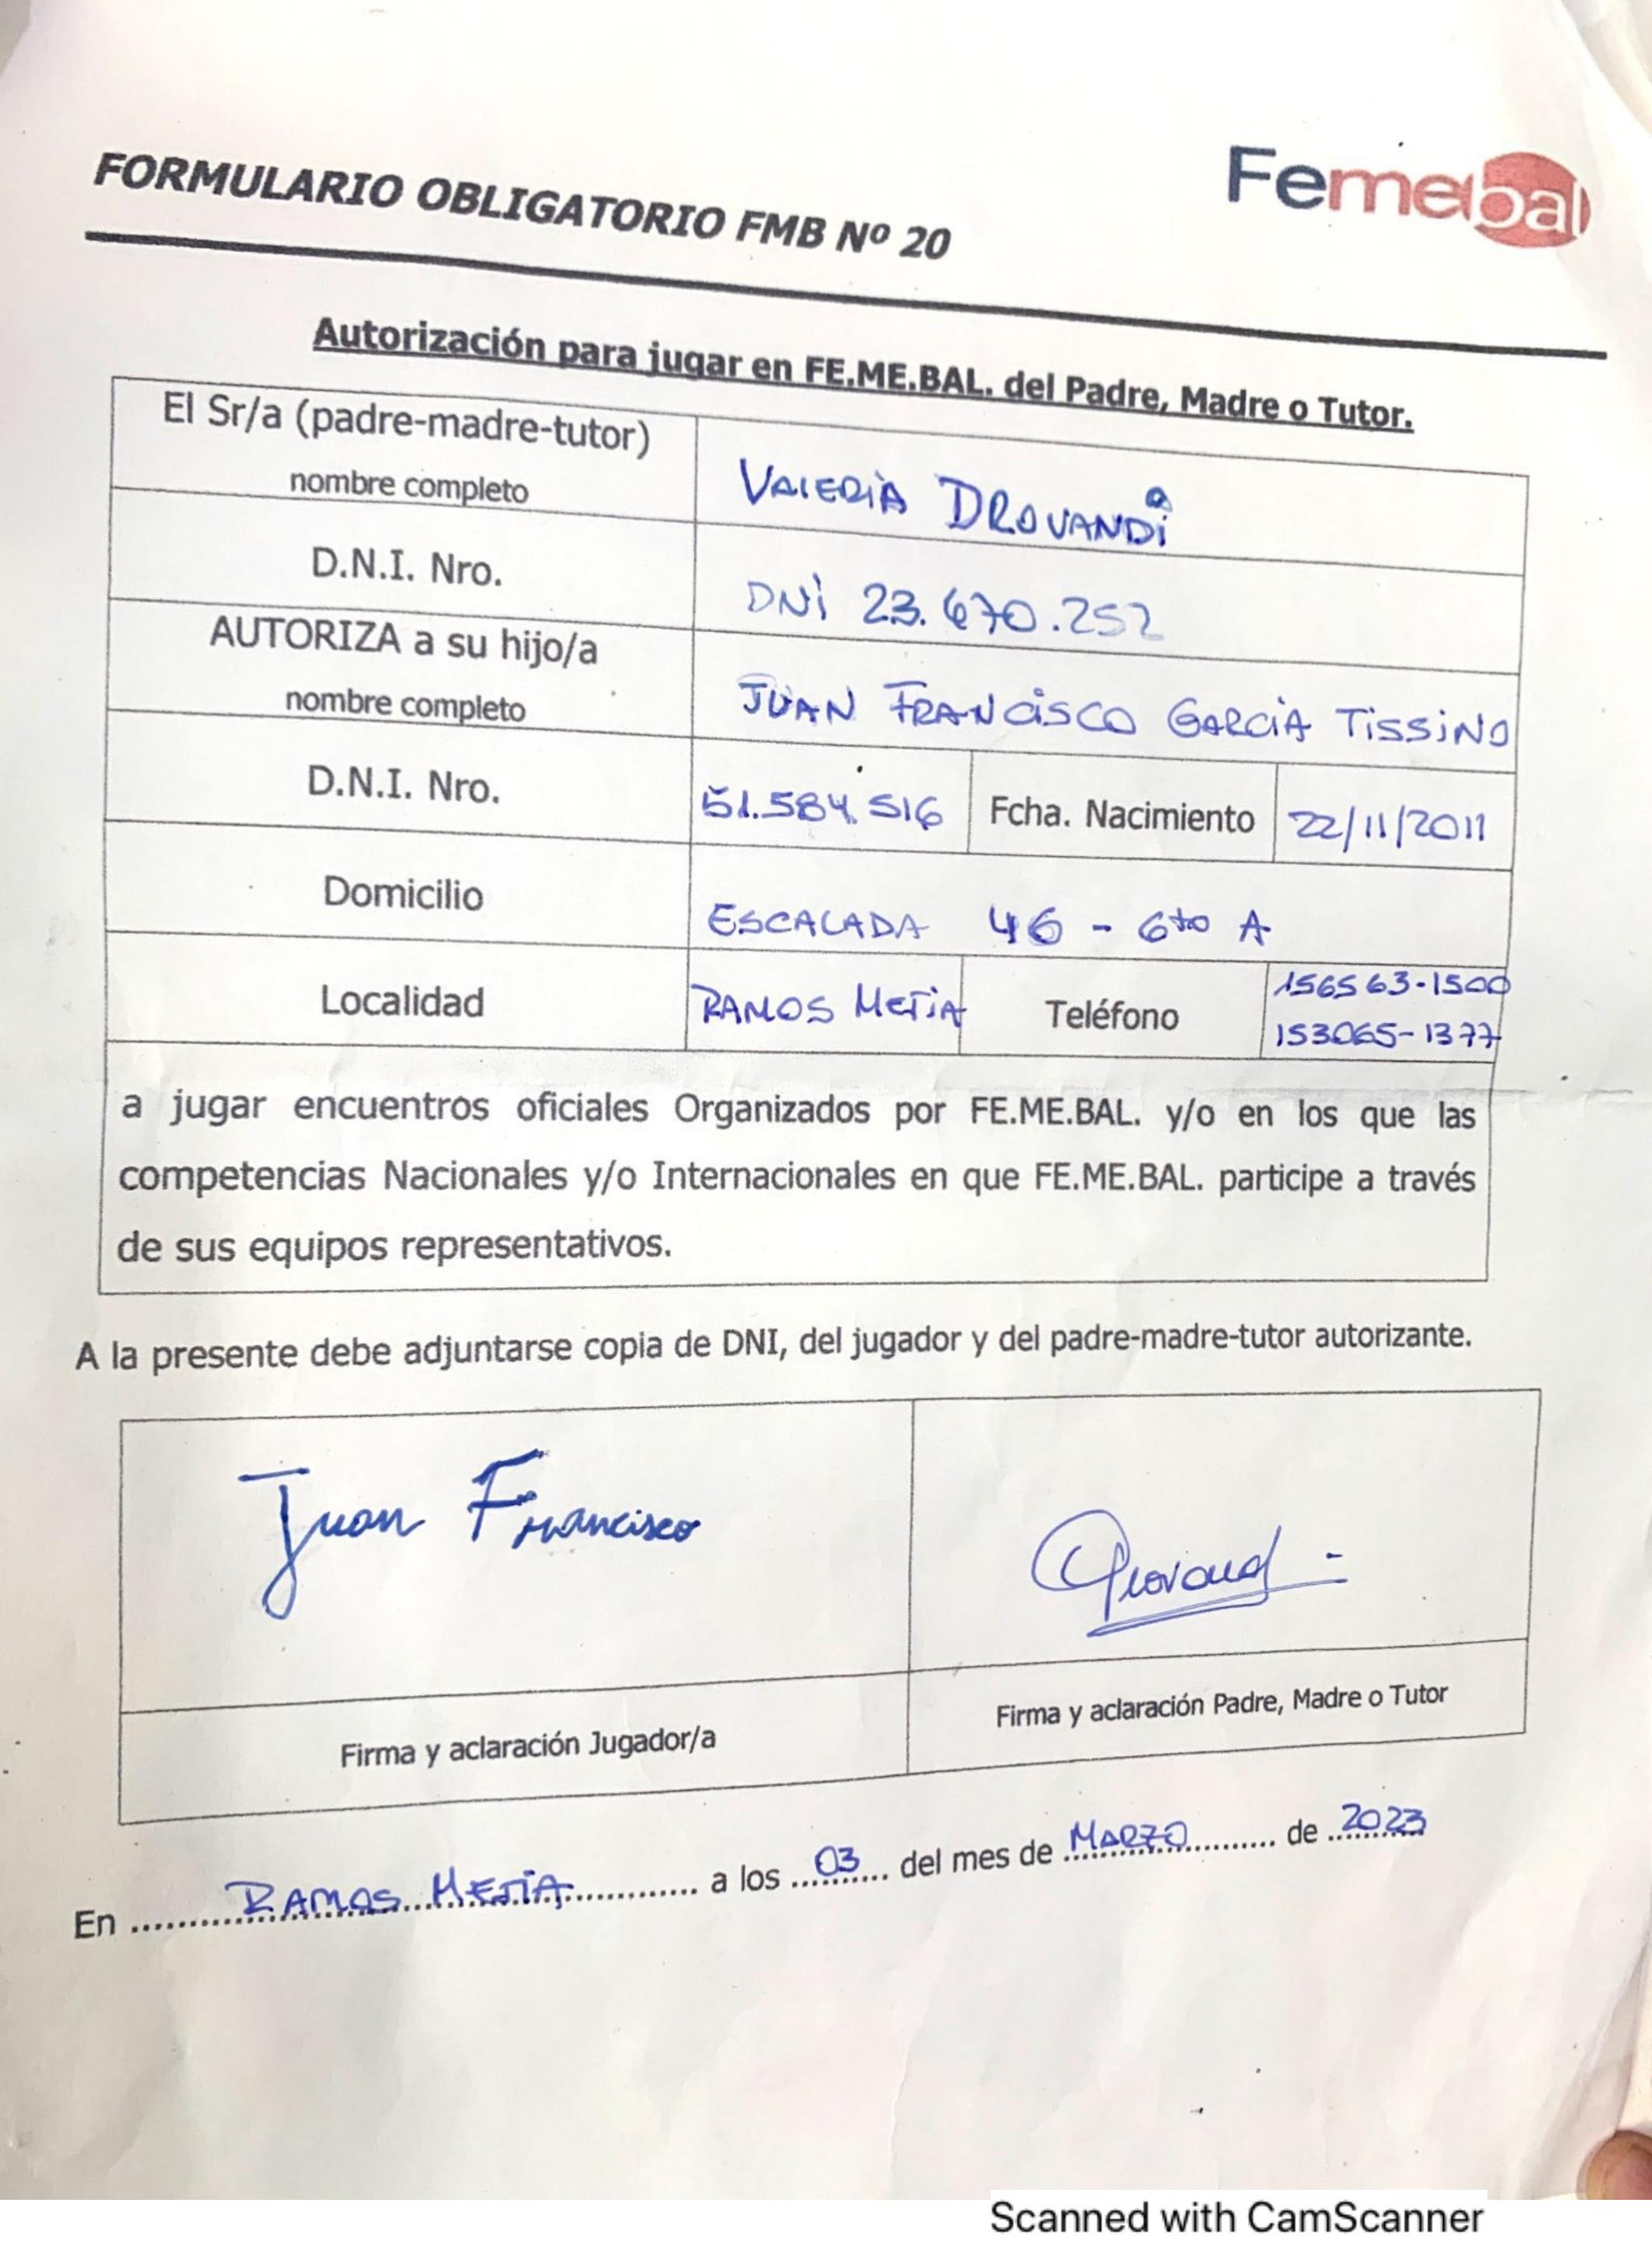 FORMULARIO OBLIGATORIO FMB Nº 20
Femebal
Autorización para jugar en FE.ME.BAL. del Padre, Madre o Tutor.
El Sr/a (padre-madre-tutor)
nombre completo
VALERIA DROVANDI
D.N.I. Nro.
DNI 23.670.252
AUTORIZA a su hijo/a
nombre completo
JUAN FRANCISCO GARCIA TISSINO
D.N.I. Nro.
51.584.516
Fcha. Nacimiento
22/11/2011
Domicilio
ESCALADA 46 - 6to A
Localidad
RAMOS MEJIA
Teléfono
156563-1500
153065-1377
a jugar encuentros oficiales Organizados por FE.ME.BAL. y/o en los que las
competencias Nacionales y/o Internacionales en que FE.ME.BAL. participe a través
de sus equipos representativos.
A la presente debe adjuntarse copia de DNI, del jugador y del padre-madre-tutor autorizante.
Juan Francisco
Firma y aclaración Jugador/a
Firma y aclaración Padre, Madre o Tutor
En RAMOS MEJIA a los 03 del mes de MARZO de 2023
Scanned with CamScanner